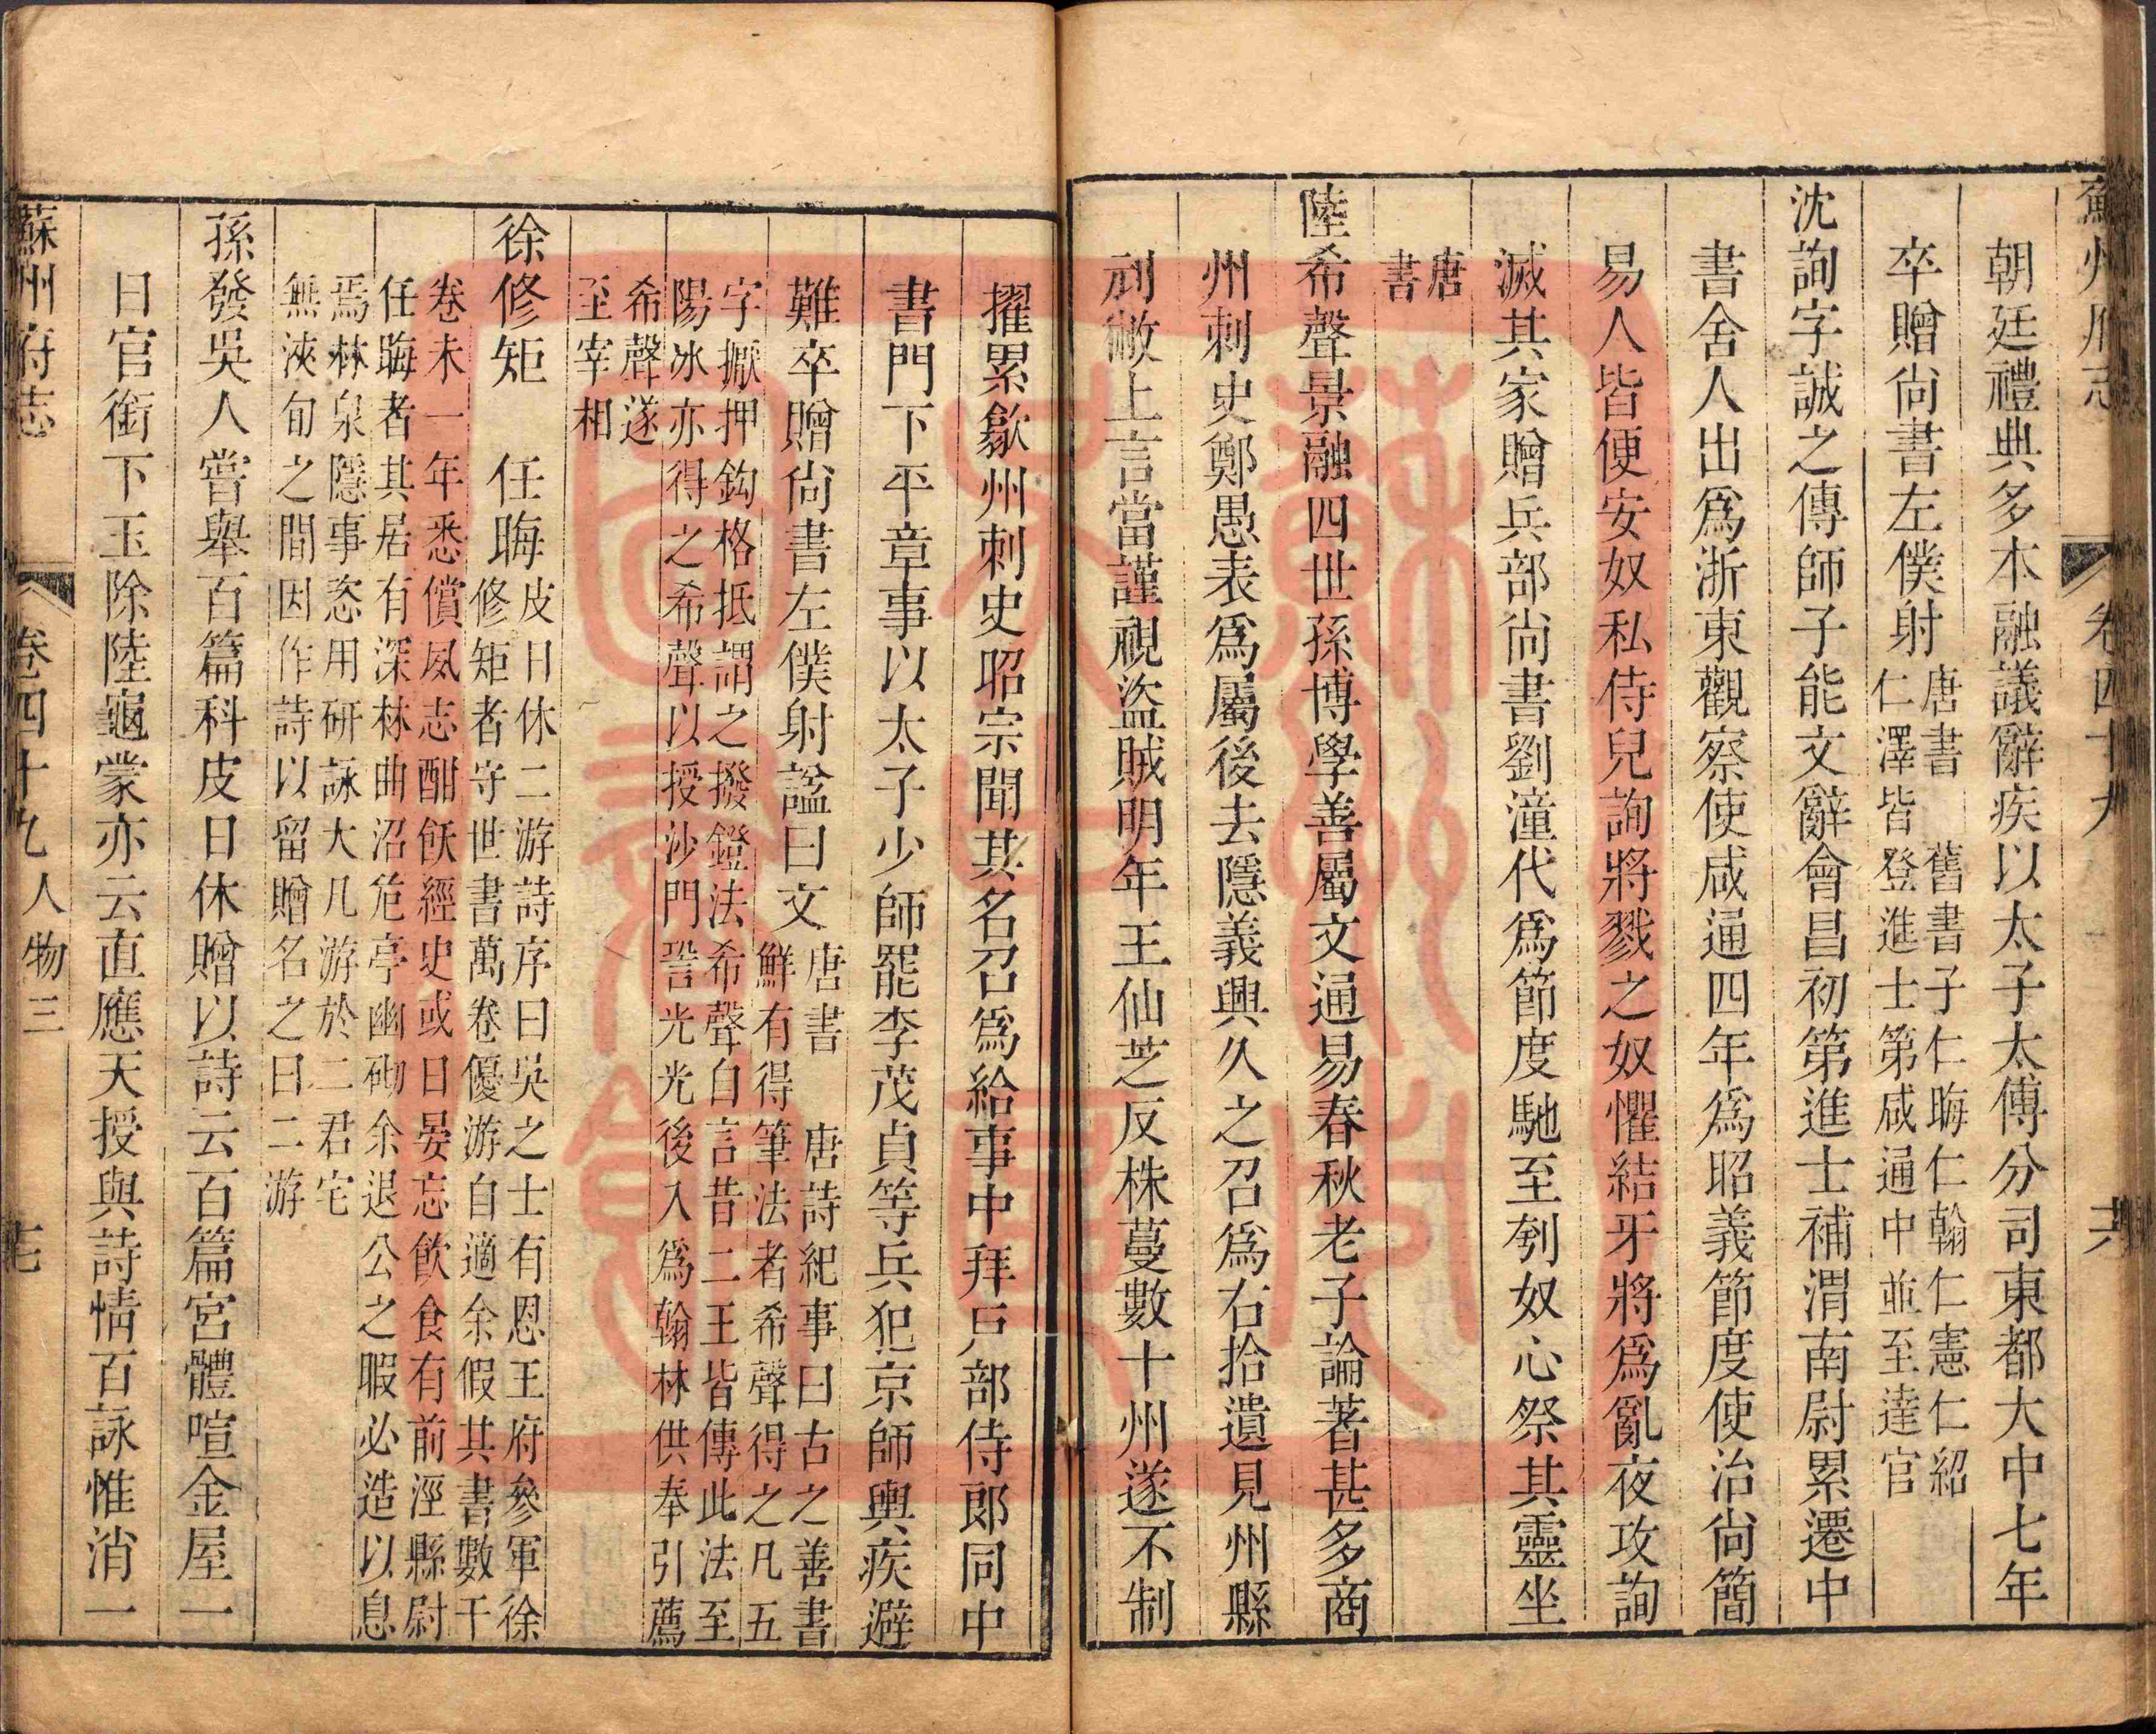 蘇州府志 卷四十九 六
朝廷禮典多本融議辭疾以太子太傅分司東都大中七年
卒贈尚書左僕射唐書 舊書子仁晦仁翰仁憲仁紹
仁澤皆登進士第咸通中並至達官
沈詢字誠之傳師子能文辭會昌初第進士補渭南尉累遷中
書舍人出爲浙東觀察使咸通四年爲昭義節度使治尚簡
易人皆便安奴私侍兒詢將戮之奴懼結牙將爲亂夜攻詢
滅其家贈兵部尚書劉潼代爲節度馳至刳奴心祭其靈坐
唐
書
陸希聲景融四世孫博學善屬文通易春秋老子論著甚多商
州刺史鄭愚表爲屬後去隱義興久之召爲右拾遺見州縣
刓敝上言當謹視盜賊明年王仙芝反株蔓數十州遂不制
擢累歙州刺史昭宗聞其名召爲給事中拜戶部侍郎同中
書門下平章事以太子少師罷李茂貞等兵犯京師輿疾避
難卒贈尚書左僕射諡曰文唐書 唐詩紀事曰古之善書
鮮有得筆法者希聲得之凡五
字擫押鈎格抵謂之撥鐙法希聲自言昔二王皆傳此法至
陽冰亦得之希聲以授沙門䛒光光後入爲翰林供奉引薦
希聲遂
至宰相
徐修矩 任晦皮日休二游詩序曰吳之士有恩王府參軍徐
修矩者守世書萬卷優游自適余假其書數千
卷未一年悉償夙志酣飫經史或日晏忘飲食有前涇縣尉
任晦者其居有深林曲沼危亭幽砌余退公之暇必造以息
焉林泉隱事恣用研詠大凡游於二君宅
無浹旬之間因作詩以留贈名之曰二游
孫發吳人嘗舉百篇科皮日休贈以詩云百篇宮體喧金屋一
日官銜下玉除陸龜蒙亦云直應天授與詩情百詠惟消一
蘇州府志 卷四十九 人物三 七